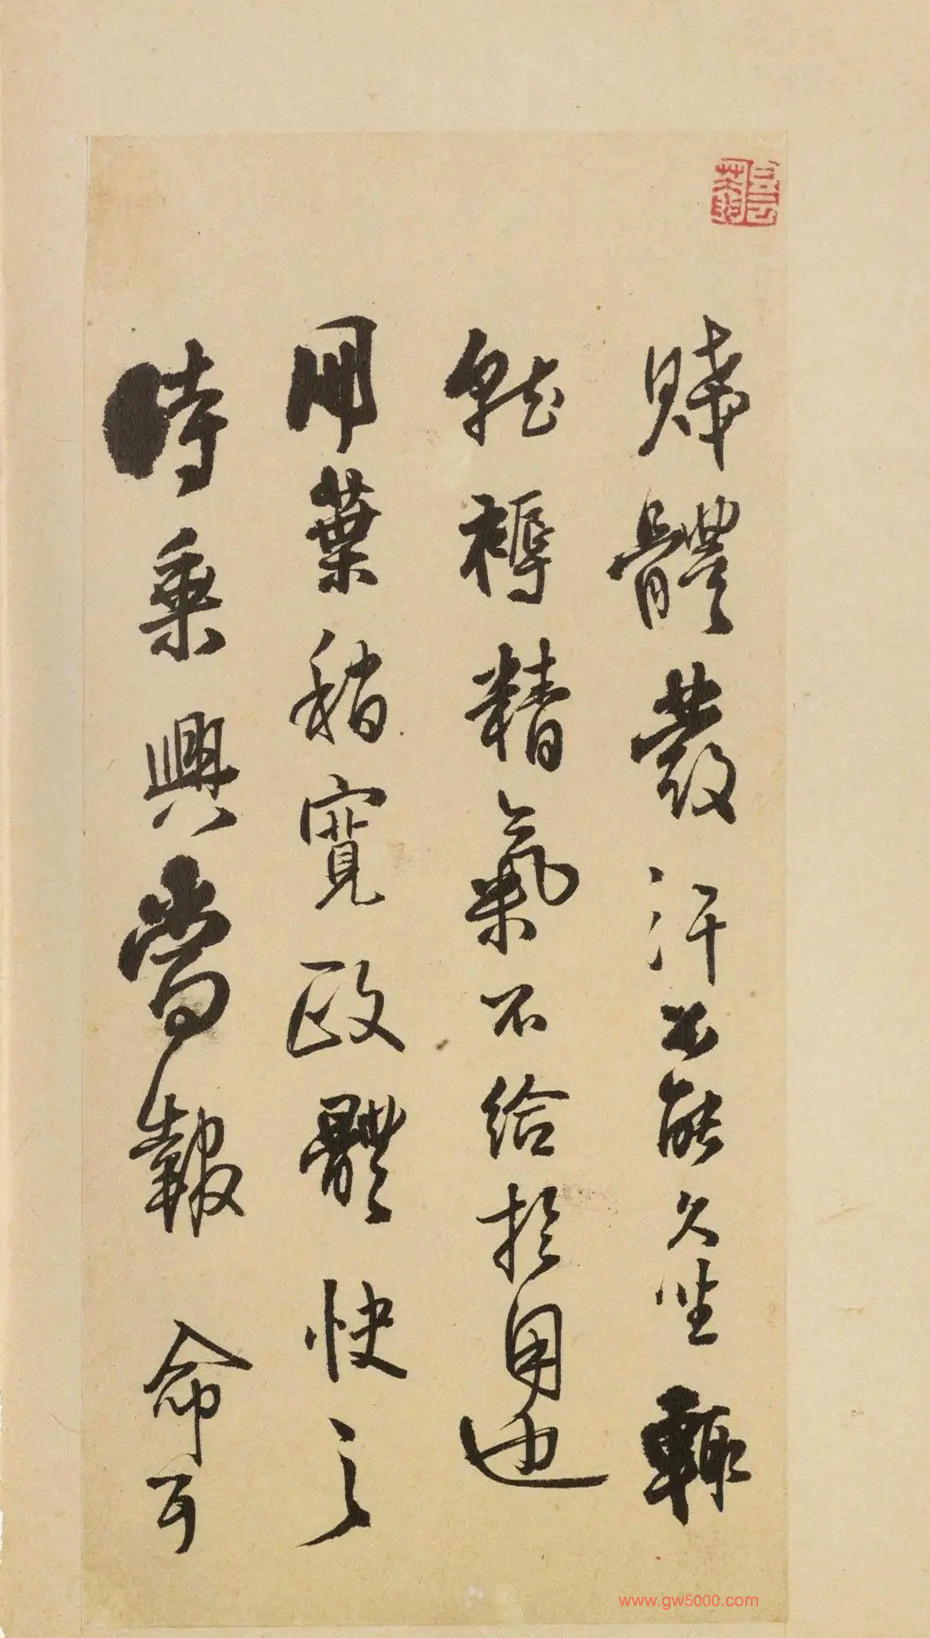 賤體發汗不能久坐輒
就褥精氣不給於用也
冊葉稍寬政體快之
時乘興當報 命耳
www.gw5000.com